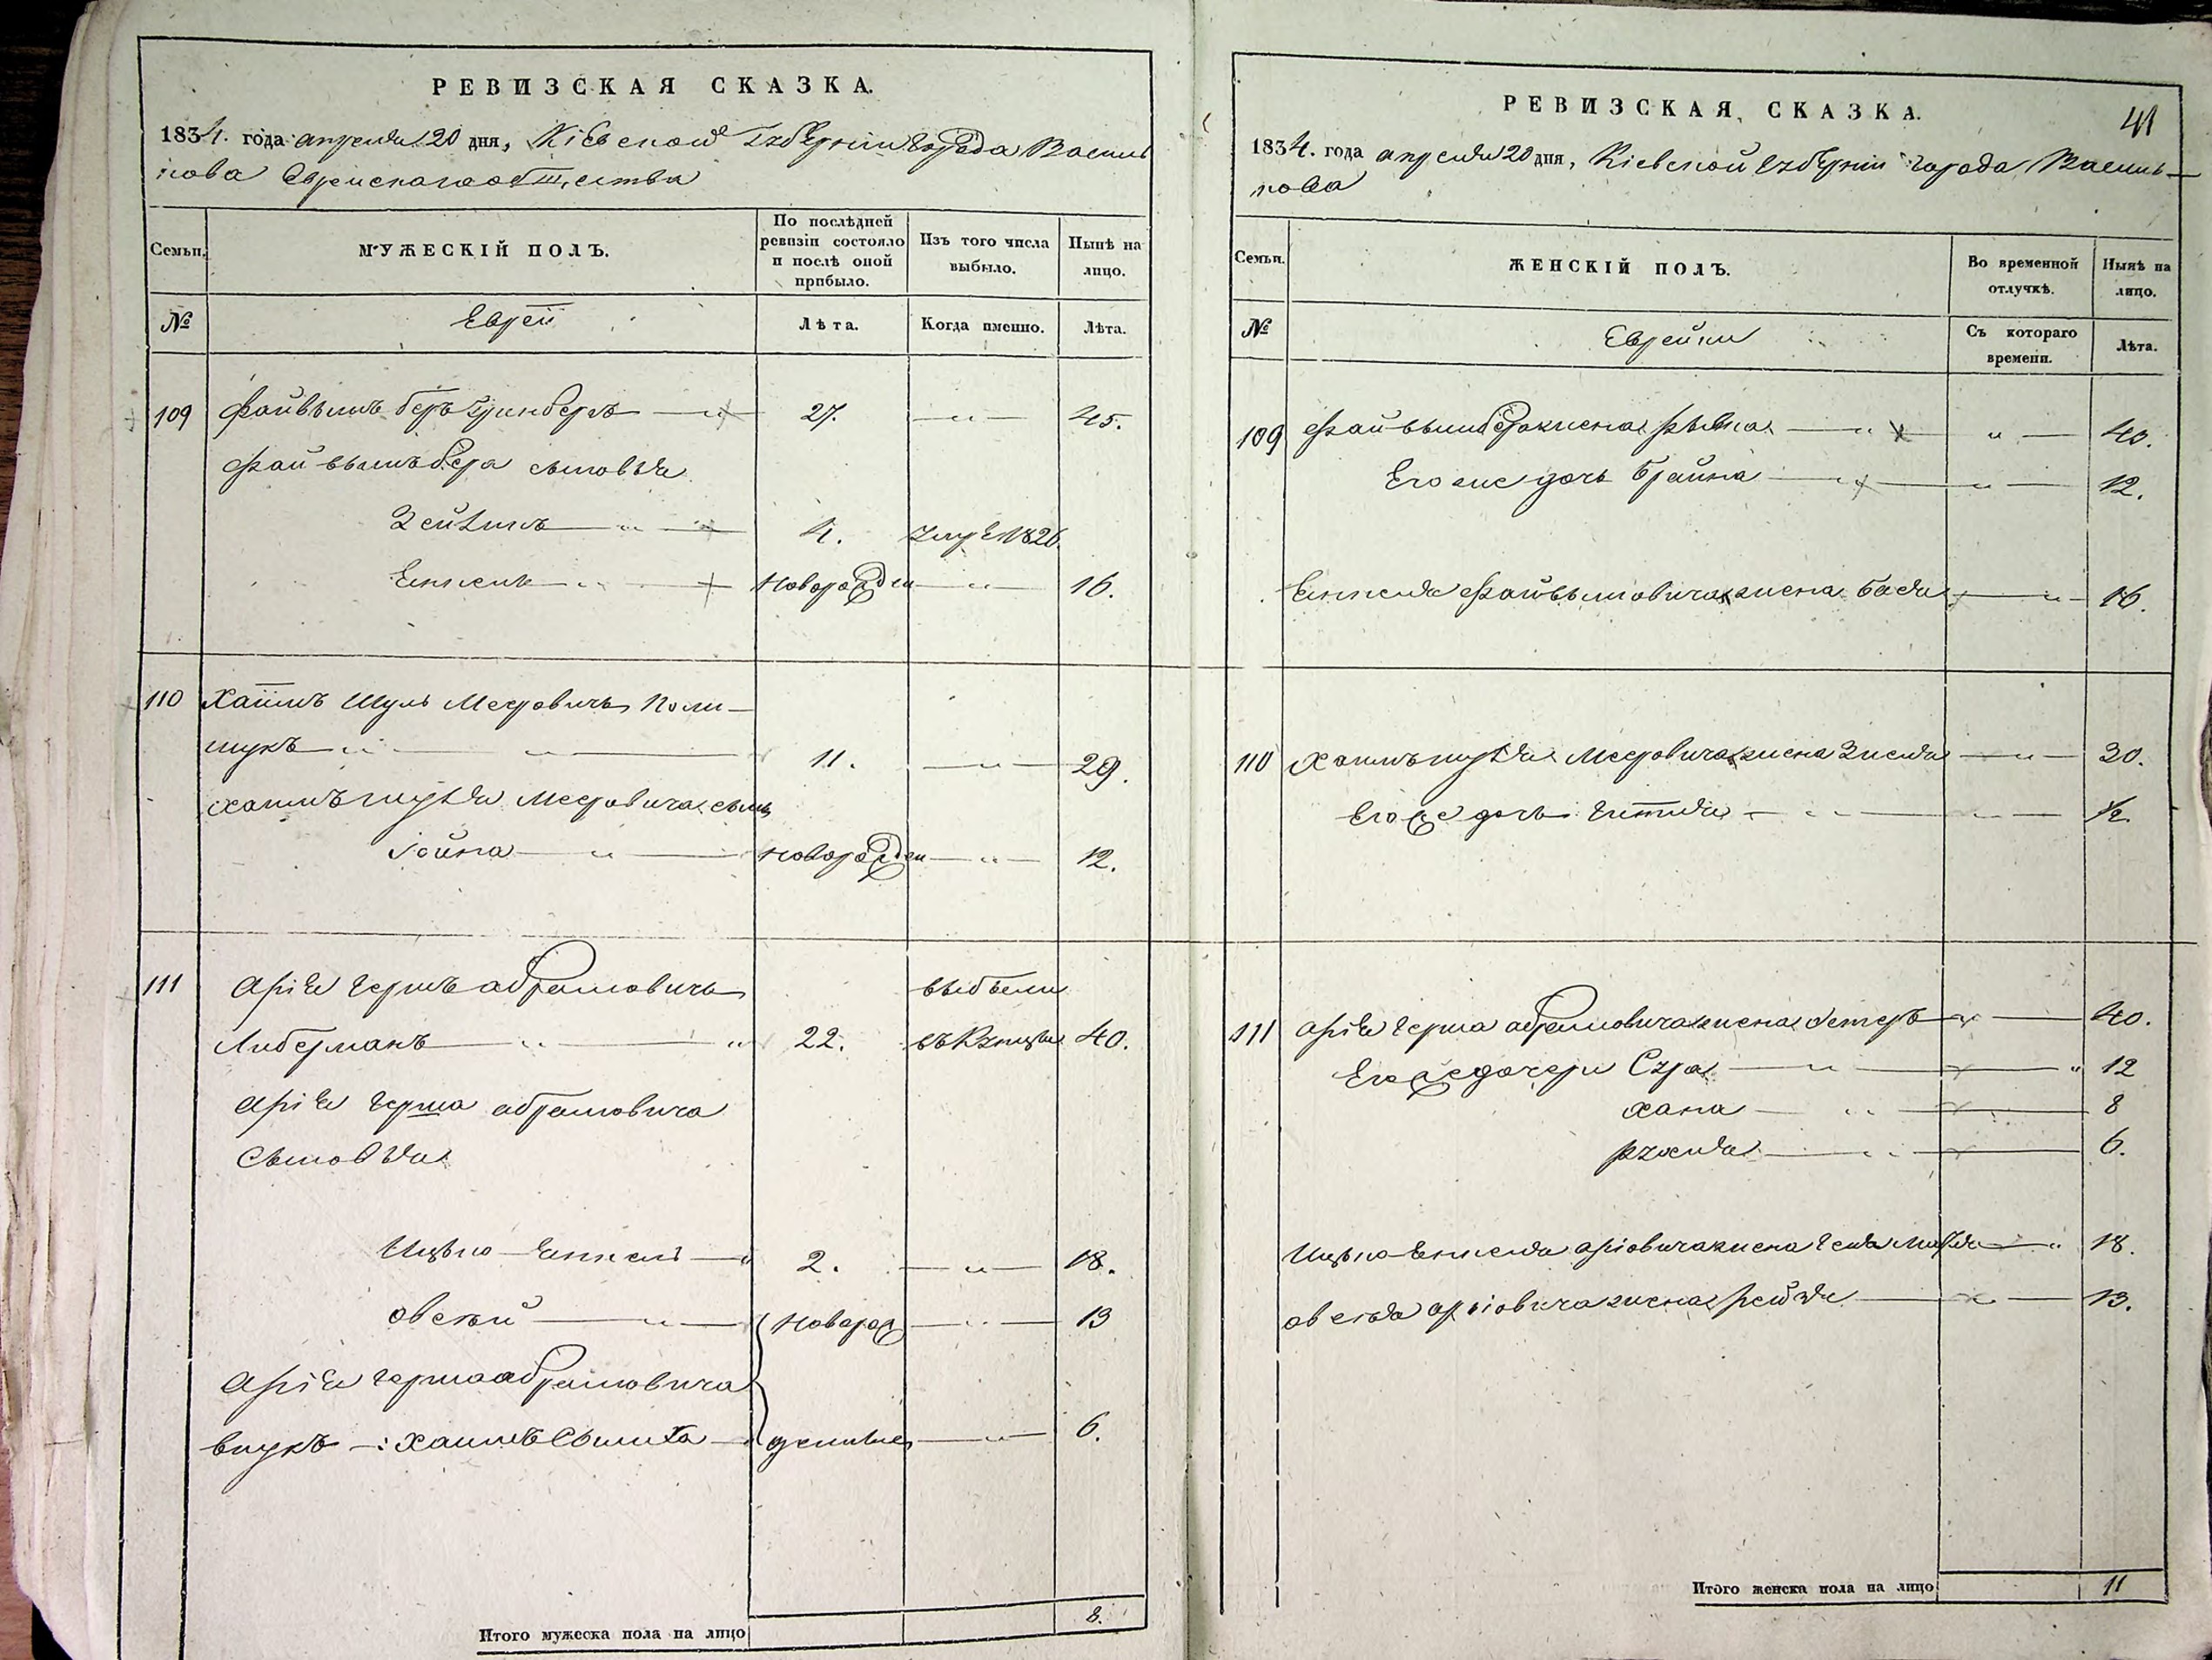 РЕВИЗСКАЯ СКАЗКА.
1834. года апреля 20 дня, Кіевской Губерніи города Василь
кова Еврейскаго общества
Семьи.
МУЖЕСКІЙ ПОЛЪ.
По послѣдней ревизіи состояло и послѣ оной прибыло.
Изъ того числа выбыло.
Нынѣ на лицо.
№
Евреи
Лѣта.
Когда именно.
Лѣта.
109 Файвишъ беръ Гринбергъ 27. 45.
Файвишъ бера сыновья
Зейликъ 4. умре 1826.
Енкель новорожден 16.
110 Хаимъ Шуль Мееровичъ Поли-
щукъ 11. 29.
Хаимъ шуля Мееровича сынъ
Іойна новорожден 12.
111 Арія Гершъ Абрамовичъ выбыли
Либерманъ 22. въ купцы 40.
Арія Герша Абрамовича
сыновья
Ицько-Енкель 2. 18.
Овсѣй новорож 13
Арія Герша Абрамовича
внукъ Хаимъ Симха денные 6.
Итого мужеска пола на лицо 8.
РЕВИЗСКАЯ СКАЗКА.
41
1834. года апреля 20 дня, Кіевской Губерніи города Василь-
кова
Семьи.
ЖЕНСКІЙ ПОЛЪ.
Во временной отлучкѣ.
Нынѣ на лицо.
№
Еврейки
Съ котораго времени.
Лѣта.
109 Файвиша бера жена Рывка 40.
Его же дочь Брайна 12.
Енкеля Файвишовича жена Бася 16.
110 Хаимъ шуля Мееровича жена Зисля 30.
Его же дочь Гитля 1/2
111 Арія Герша Абрамовича жена Естеръ 40.
Его же дочери Сура 12
Хана 8
Рухля 6.
Ицько-Енкеля Аріовича жена Геня Маля 18.
Овсѣя Аріовича жена Рейзя 13.
Итого женска пола на лицо 11